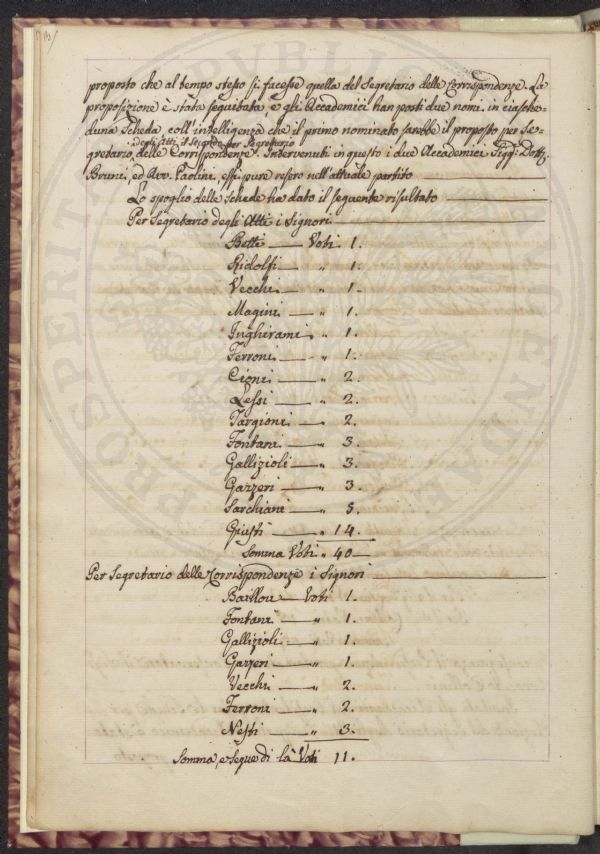 proposto che al tempo stesso si facesse quella del Segretario delle Corrispondenze. La
proposizione è stata seguitata, e gli Accademici han posti due nomi in ciasche-
duna Scheda, coll'intelligenza che il primo nominato sarebbe il proposto per Se-
gretario degli Atti, il secondo per Segretario
delle Corrispondenze. Intervenuti in questo i due Accademici Sigg: Dott:
Bruni, ed Avv. Paolini, essi pure resero nell'attuale partito
Lo spoglio delle Schede ha dato il seguente risultato
Per Segretario degli Atti i Signori
Betti — Voti 1.
Ridolfi — „ 1.
Vecchi — „ 1.
Magini — „ 1.
Inghirami „ 1.
Ferroni — „ 1.
Cioni — „ 2.
Lessi — „ 2.
Targioni — „ 2.
Fontani — „ 3.
Gallizioli — „ 3.
Gazzeri — „ 3.
Sarchiani — „ 5.
Giusti — „ 14.
Somma Voti „ 40
Per Segretario delle Corrispondenze i Signori
Baillou — Voti 1.
Fontani — „ 1.
Gallizioli — „ 1.
Gazzeri — „ 1.
Vecchi — „ 2.
Ferroni — „ 2.
Nesti — „ 3.
Somma, e segue di là Voti 11.